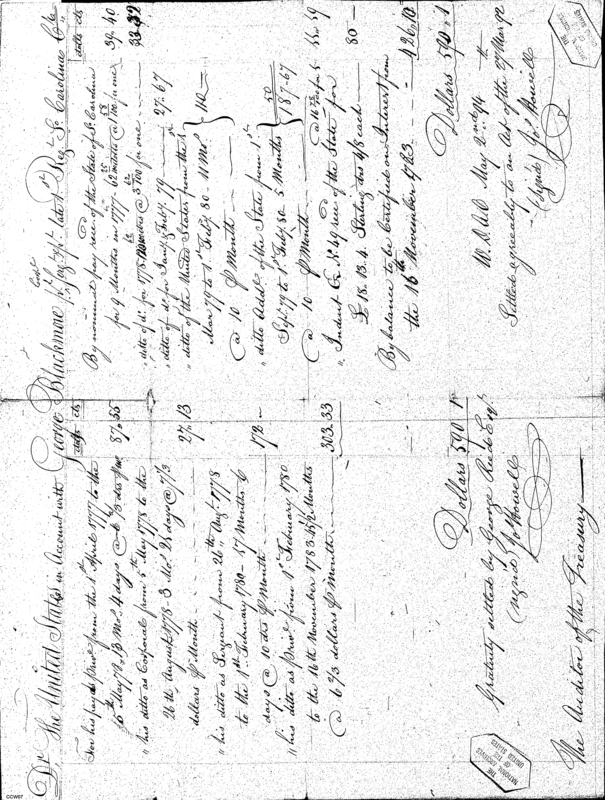 Dr The United States in Account with George Blackmore Corpl Sergt late 1st Regt So Carolina Cr
dolls cts
For his pay as Privt from the 1st April 1777 to the
5th May 78, 13 Mos 4 days @ 6 2/3 drs 87.55
" his ditto as Corporal from 5th Mar 1778 to the
26th August 1778 - 3 Mos 21 days @ 7 1/3
dollars Month 27.13
" his ditto as Sergant from 26th Augt 1778
to the 1st February 1780 - 17 Months 6
days @ 10 drs Month 172 -
" his ditto as Privt from 1st February 1780
to the 16th November 1783 45 1/2 Months
@ 6 2/3 dollars Month 303.33
Dollars 590 1
Gratuity settled by George Reid Esqr
signed Jos Howell
The Auditor of the Treasury
dolls cts
By nominal pay rece of the State of So Carolina
for 9 Months in 1777 - 62 @ for one 39.40
" ditto of do for 1778 @ for one 33.32
" ditto of do for Jany & Feby 79 27.67
" ditto of the United States from the 1st
Mar 79 to 1st Feby 80 - 11 Mos
@ 10 Month 110
" ditto Addl of the State from 1st
Sept 79 to 1st Feby 80 - 5 Months 50
@ 10 Month 187.67
" Indent No 49 rece of the State for
£ 18.13.4 Sterling drs 4/8 each 80 -
By balance to be Certified on Interest from
the 16th November 1783 426.10
Dollars 590.1
W.D.A.O May 2nd 94
Settled agreeably to an act of the 27th Mar 92
(signed) Jos Howell
NATIONAL ARCHIVES
OF THE
UNITED STATES
CCW87